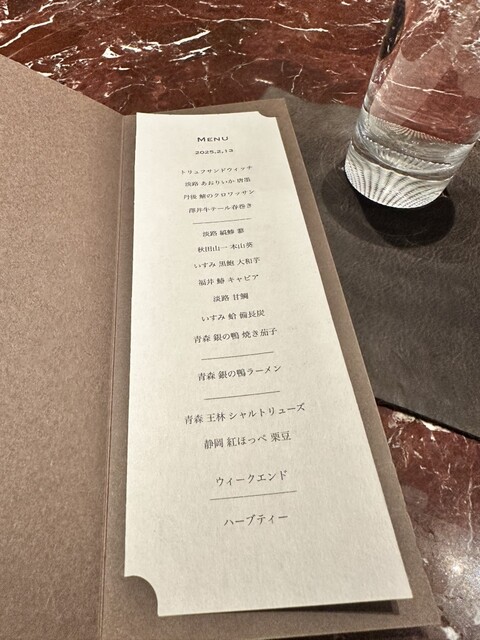 MENU
2025.2.13
トリュフサンドウィッチ
淡路 あおりいか 唐墨
丹後 鯖のクロワッサン
澤井牛テール春巻き
淡路 縞鯵
秋田山一 本山葵
いすみ 黒鮑 大和芋
福井 鰆 キャビア
淡路 甘鯛
いすみ 蛤 備長炭
青森 銀の鴨 焼き茄子
青森 銀の鴨ラーメン
青森 王林 シャルトリューズ
静岡 紅ほっぺ 栗豆
ウィークエンド
ハーブティー